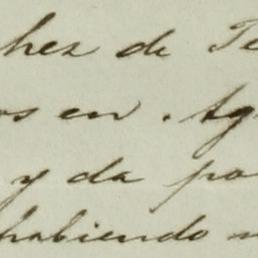 hez de Te
os en Ag
y da po
habiendo